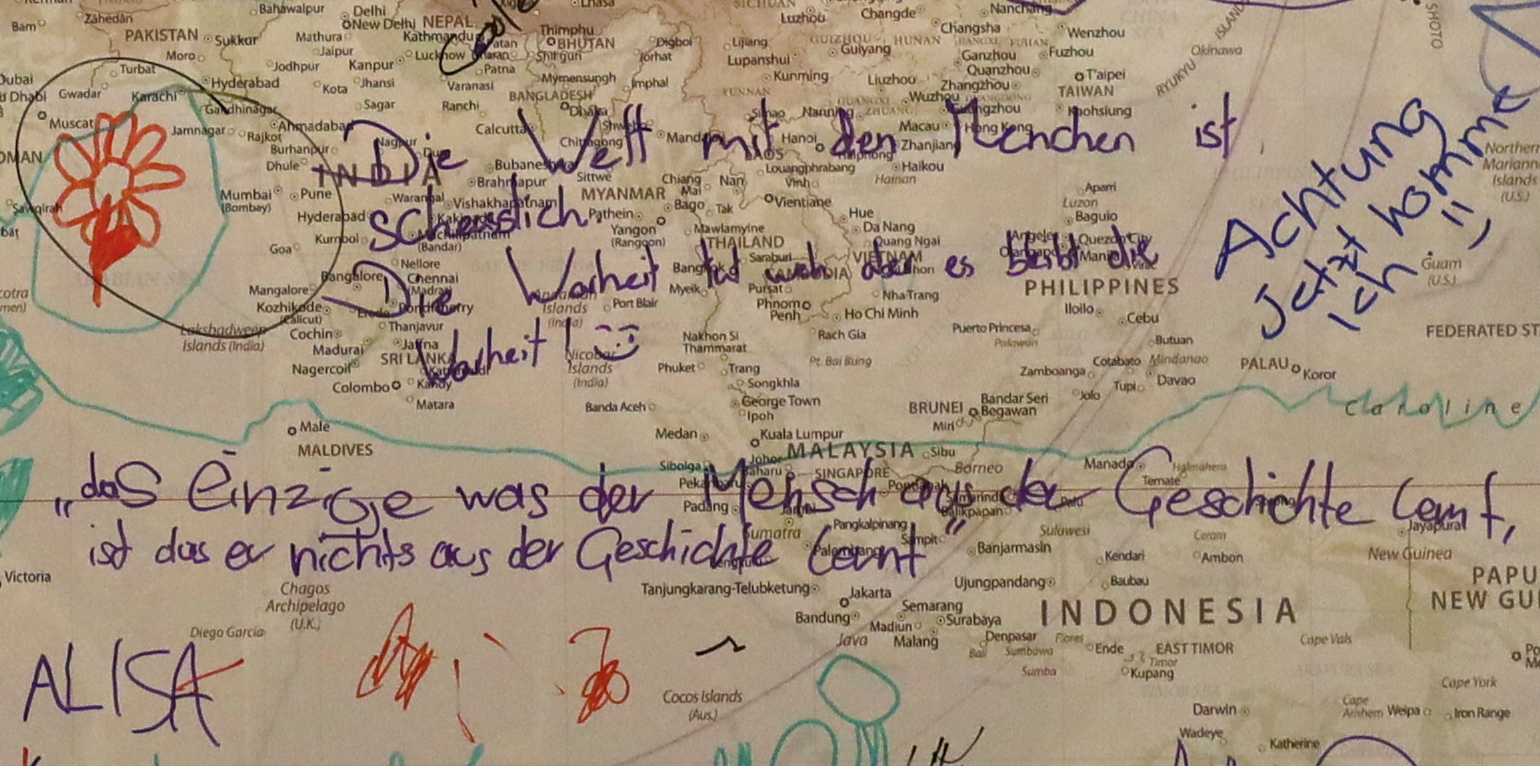 Bahawalpur
Delhi
New Delhi
NEPAL
Lhasa
SICHUAN
Luzhou
Changde
Nanchang
Bam
Zahedan
PAKISTAN
Sukkur
Mathura
Kathmandu
Thimphu
BHUTAN
Digboi
Lijiang
GUIZHOU
HUNAN
Changsha
Wenzhou
Moro
Jaipur
Lucknow
Jorhat
Lupanshui
Guiyang
Ganzhou
Fuzhou
Okinawa
Turbat
Jodhpur
Kanpur
Patna
Kunming
Quanzhou
T'aipei
Gwadar
Karachi
Hyderabad
Kota
Jhansi
Varanasi
Mymensingh
Imphal
YUNNAN
Liuzhou
Zhangzhou
TAIWAN
RYUKYU ISLANDS
Muscat
Gandhinagar
Sagar
Ranchi
BANGLADESH
Dhaka
Nanning
Wuzhou
Kaohsiung
Jamnagar
Rajkot
Ahmadabad
Nagpur
Calcutta
Chittagong
Hanoi
Macau
Hong Kong
Zhanjiang
Die Welt mit den Menchen ist
Burhanpur
Dhule
INDIA
Bubaneshwa
Sittwe
LAOS
Louangphrabang
Haikou
Hainan
Mumbai
(Bombay)
Pune
Warangal
Brahmapur
Vishakhapatnam
MYANMAR
Chiang
Mai
Nan
Vinh
Vientiane
Aparri
Luzon
Northern
Mariana
Islands
(U.S.)
scheusslich
Hyderabad
Kurnool
Goa
(Bandar)
Pathein
Yangon
(Rangoon)
Bago
Tak
Mawlamyine
THAILAND
Hue
Da Nang
Quang Ngai
Baguio
Quezon City
Achtung
Jetzt komme
ich !!
Die Warheit tud weh aber es bleibt die
Nellore
Chennai
Bangalore
Mangalore
Kozhikode
(Calicut)
Pondicherry
Islands
(India)
Port Blair
Myeik
Saraburi
Pursat
Phnom
Penh
VIETNAM
Nha Trang
Ho Chi Minh
PHILIPPINES
Iloilo
Cebu
Guam
(U.S.)
Warheit! :)
Lakshadweep
Islands (India)
Cochin
Madurai
Nagercoil
Thanjavur
Jaffna
SRI LANKA
Colombo
Kandy
Matara
Nicobar
Islands
(India)
Nakhon Si
Thammarat
Phuket
Trang
Rach Gia
Pt. Bai Bung
Puerto Princesa
Palawan
Butuan
Cotabato
Mindanao
Zamboanga
Jolo
Tupi
Davao
PALAU
Koror
FEDERATED ST
Banda Aceh
Songkhla
George Town
Ipoh
BRUNEI
Bandar Seri
Begawan
Miri
Caroline
Male
MALDIVES
Medan
Kuala Lumpur
MALAYSIA
Sibu
Sibolga
Johor
Baharu
SINGAPORE
Borneo
Manado
Halmahera
Ternate
„das einzige was der Mehsch aus der Geschichte lernt,
Padang
Sumatra
Pangkalpinang
Sampit
Balikpapan
Sulawesi
Ceram
Jayapura
ist das er nichts aus der Geschichte lernt“
Palembang
Banjarmasin
Kendari
Ambon
New Guinea
Victoria
Chagos
Archipelago
(U.K.)
Tanjungkarang-Telubketung
Jakarta
Ujungpandang
Baubau
PAPU
NEW GUI
Bandung
Semarang
Madiun
Surabaya
INDONESIA
Diego Garcia
Java
Malang
Denpasar
Bali
Flores
Sumbawa
Ende
EAST TIMOR
Timor
Kupang
Sumba
Cape Vals
ALISA
Cocos Islands
(Aus.)
Darwin
Cape
Arnhem
Weipa
Cape York
Iron Range
Wadeye
Katherine